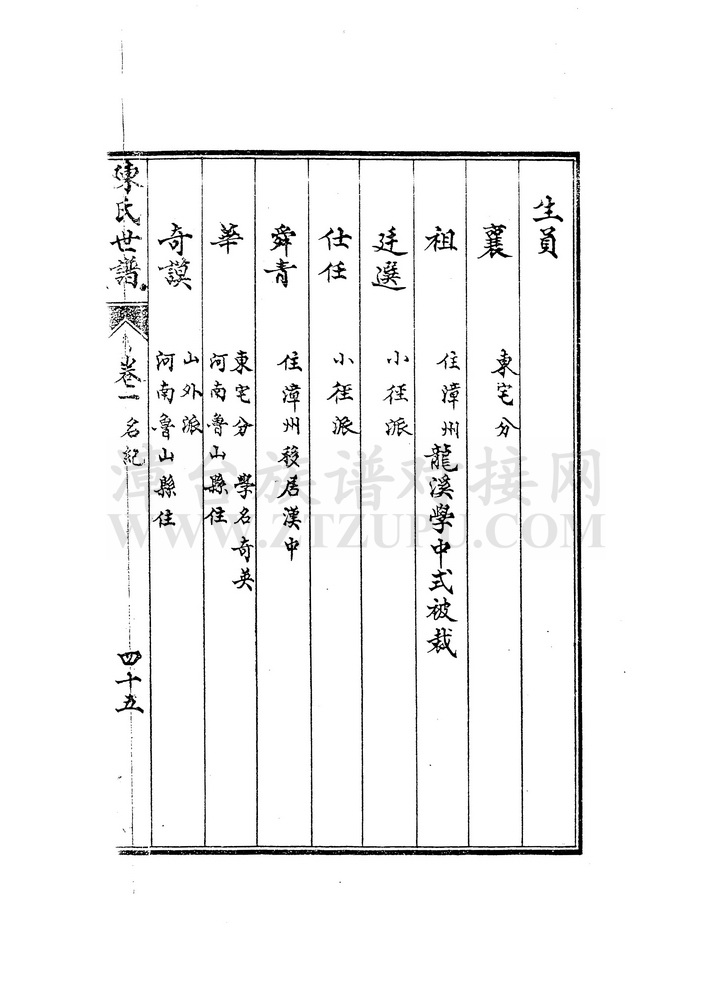 生員
襄 東宅分
祖 住漳州龍溪學中式被裁
廷選 小徑派
仕任 小徑派
舜青 住漳州移居漢中
華 東宅分 學名奇英
河南魯山縣住
奇謨 山外派
河南魯山縣住
陳氏世譜 卷二 名紀 四十五
漳台族谱对接网
WWW.ZTZUPU.COM